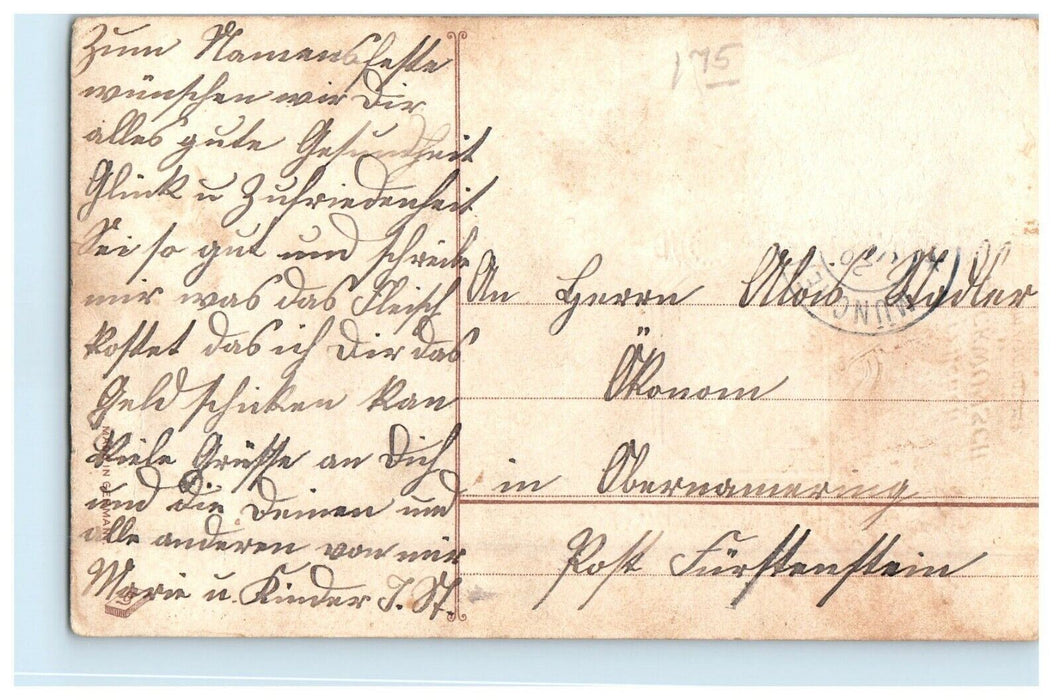 Zum Namensfeste
wünschen wir Dir
alles gute Gesundheit
Glück u Zufriedenheit
Sei so gut und schreibe
mir was das Fleisch
kostet das ich Dir das
Geld schicken kan
Viele Grüsse an Dich
und die Deinen und
alle anderen von mir
Marie u. Kinder J. St.
175
MÜNC
An Herrn Alois Nadler
Ökonom
in Obernamering
Post Fürstenstein
MADE IN GERMANY
12